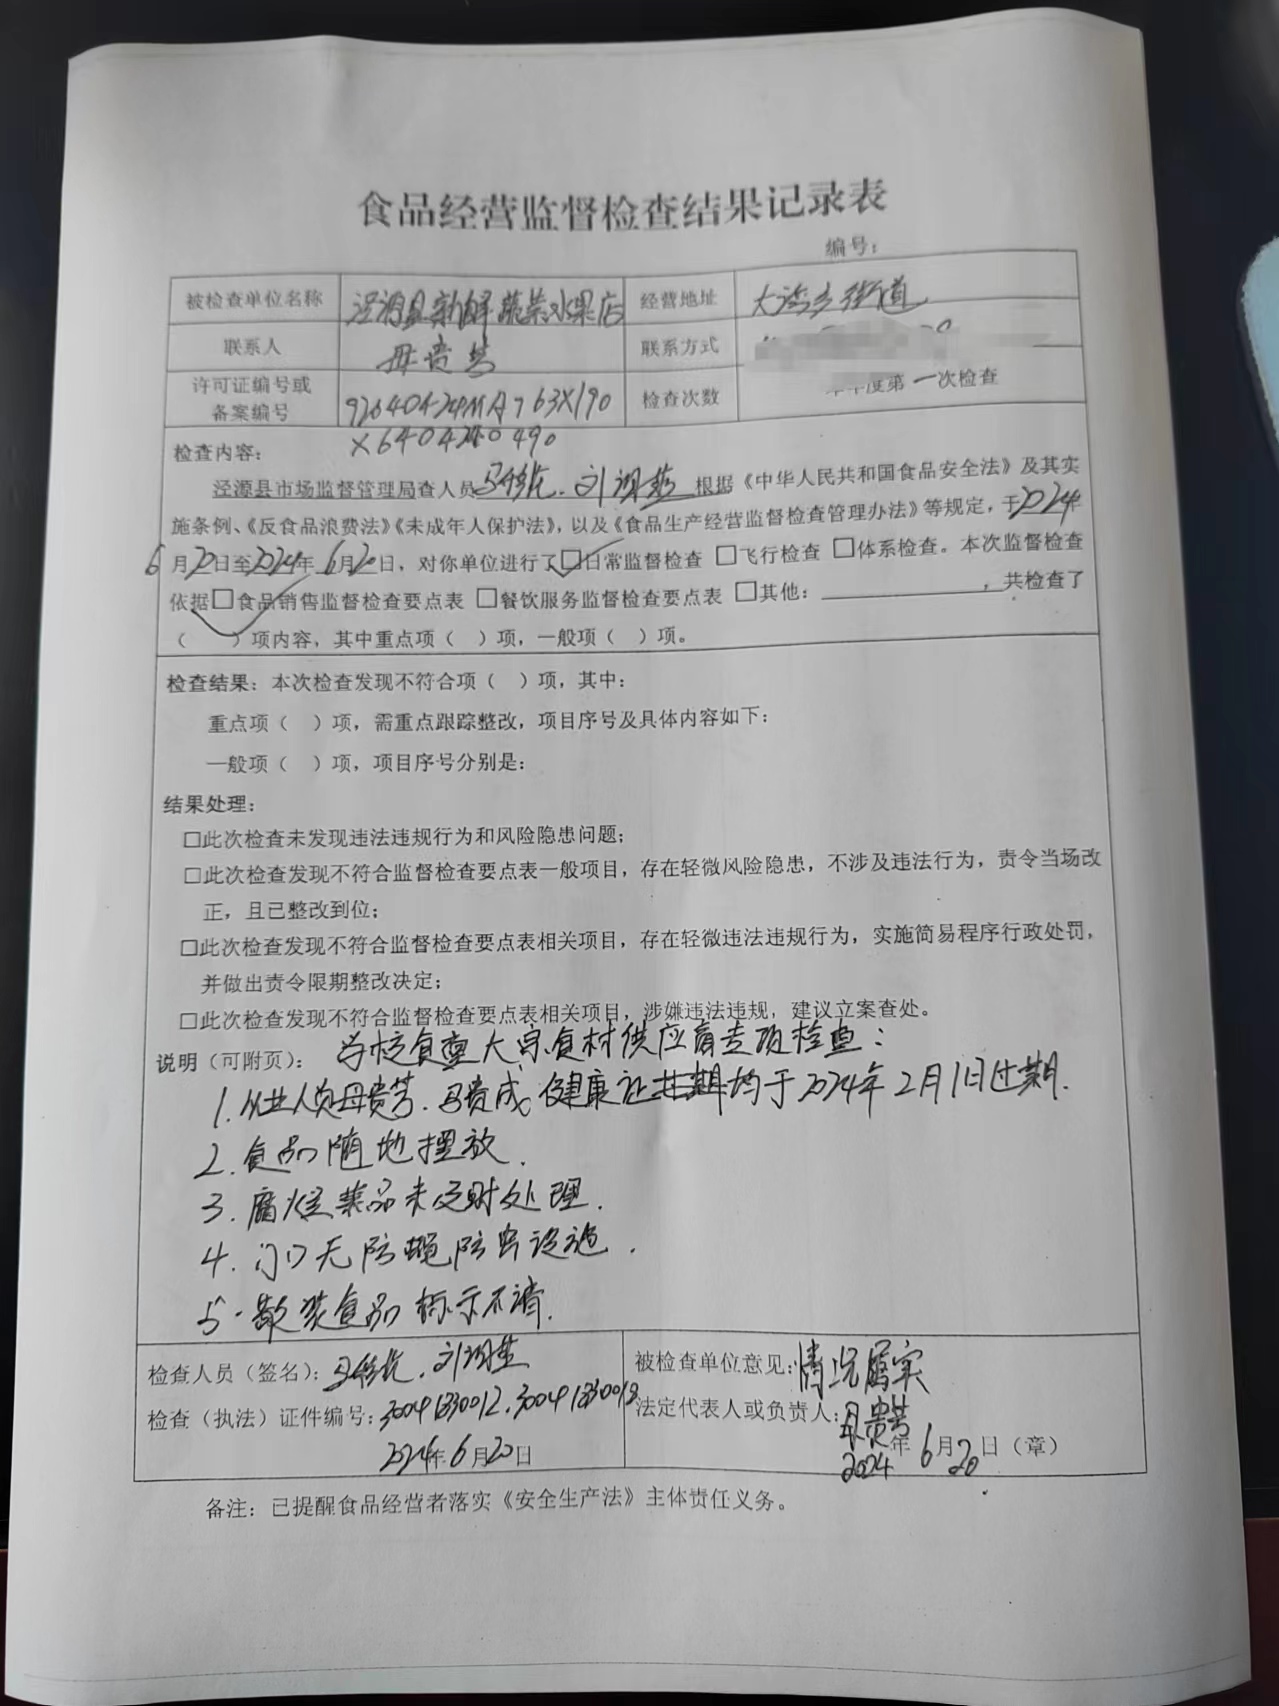 食品经营监督检查结果记录表
编号：
被检查单位名称 泾源县新鲜蔬菜水果店 经营地址 大湾乡街道
联系人 母贵芳 联系方式
许可证编号或备案编号 92640424MA763X190 X6404240490 检查次数 年度第一次检查
检查内容：
泾源县市场监督管理局查人员 根据《中华人民共和国食品安全法》及其实
施条例、《反食品浪费法》《未成年人保护法》，以及《食品生产经营监督检查管理办法》等规定，于2024年
6月20日至2024年6月20日，对你单位进行了☑日常监督检查 □飞行检查 □体系检查。本次监督检查
依据☑食品销售监督检查要点表 □餐饮服务监督检查要点表 □其他：，共检查了
（ ）项内容，其中重点项（ ）项，一般项（ ）项。
检查结果：本次检查发现不符合项（ ）项，其中：
重点项（ ）项，需重点跟踪整改，项目序号及具体内容如下：
一般项（ ）项，项目序号分别是：
结果处理：
□此次检查未发现违法违规行为和风险隐患问题；
□此次检查发现不符合监督检查要点表一般项目，存在轻微风险隐患，不涉及违法行为，责令当场改
正，且已整改到位；
□此次检查发现不符合监督检查要点表相关项目，存在轻微违法违规行为，实施简易程序行政处罚，
并做出责令限期整改决定；
□此次检查发现不符合监督检查要点表相关项目，涉嫌违法违规，建议立案查处。
说明（可附页）： 学校食堂大宗食材供应商专项检查：
1. 从业人员母贵芳、马贵成健康证均于2024年2月1日过期.
2. 食品随地摆放.
3. 腐烂菜品未及时处理.
4. 门口无防蝇防虫设施.
5. 散装食品标示不清.
检查人员（签名）：
检查（执法）证件编号：30041330012、30041330013
2024年6月20日
被检查单位意见：情况属实
法定代表人或负责人：母贵芳
2024年6月20日（章）
备注：已提醒食品经营者落实《安全生产法》主体责任义务。